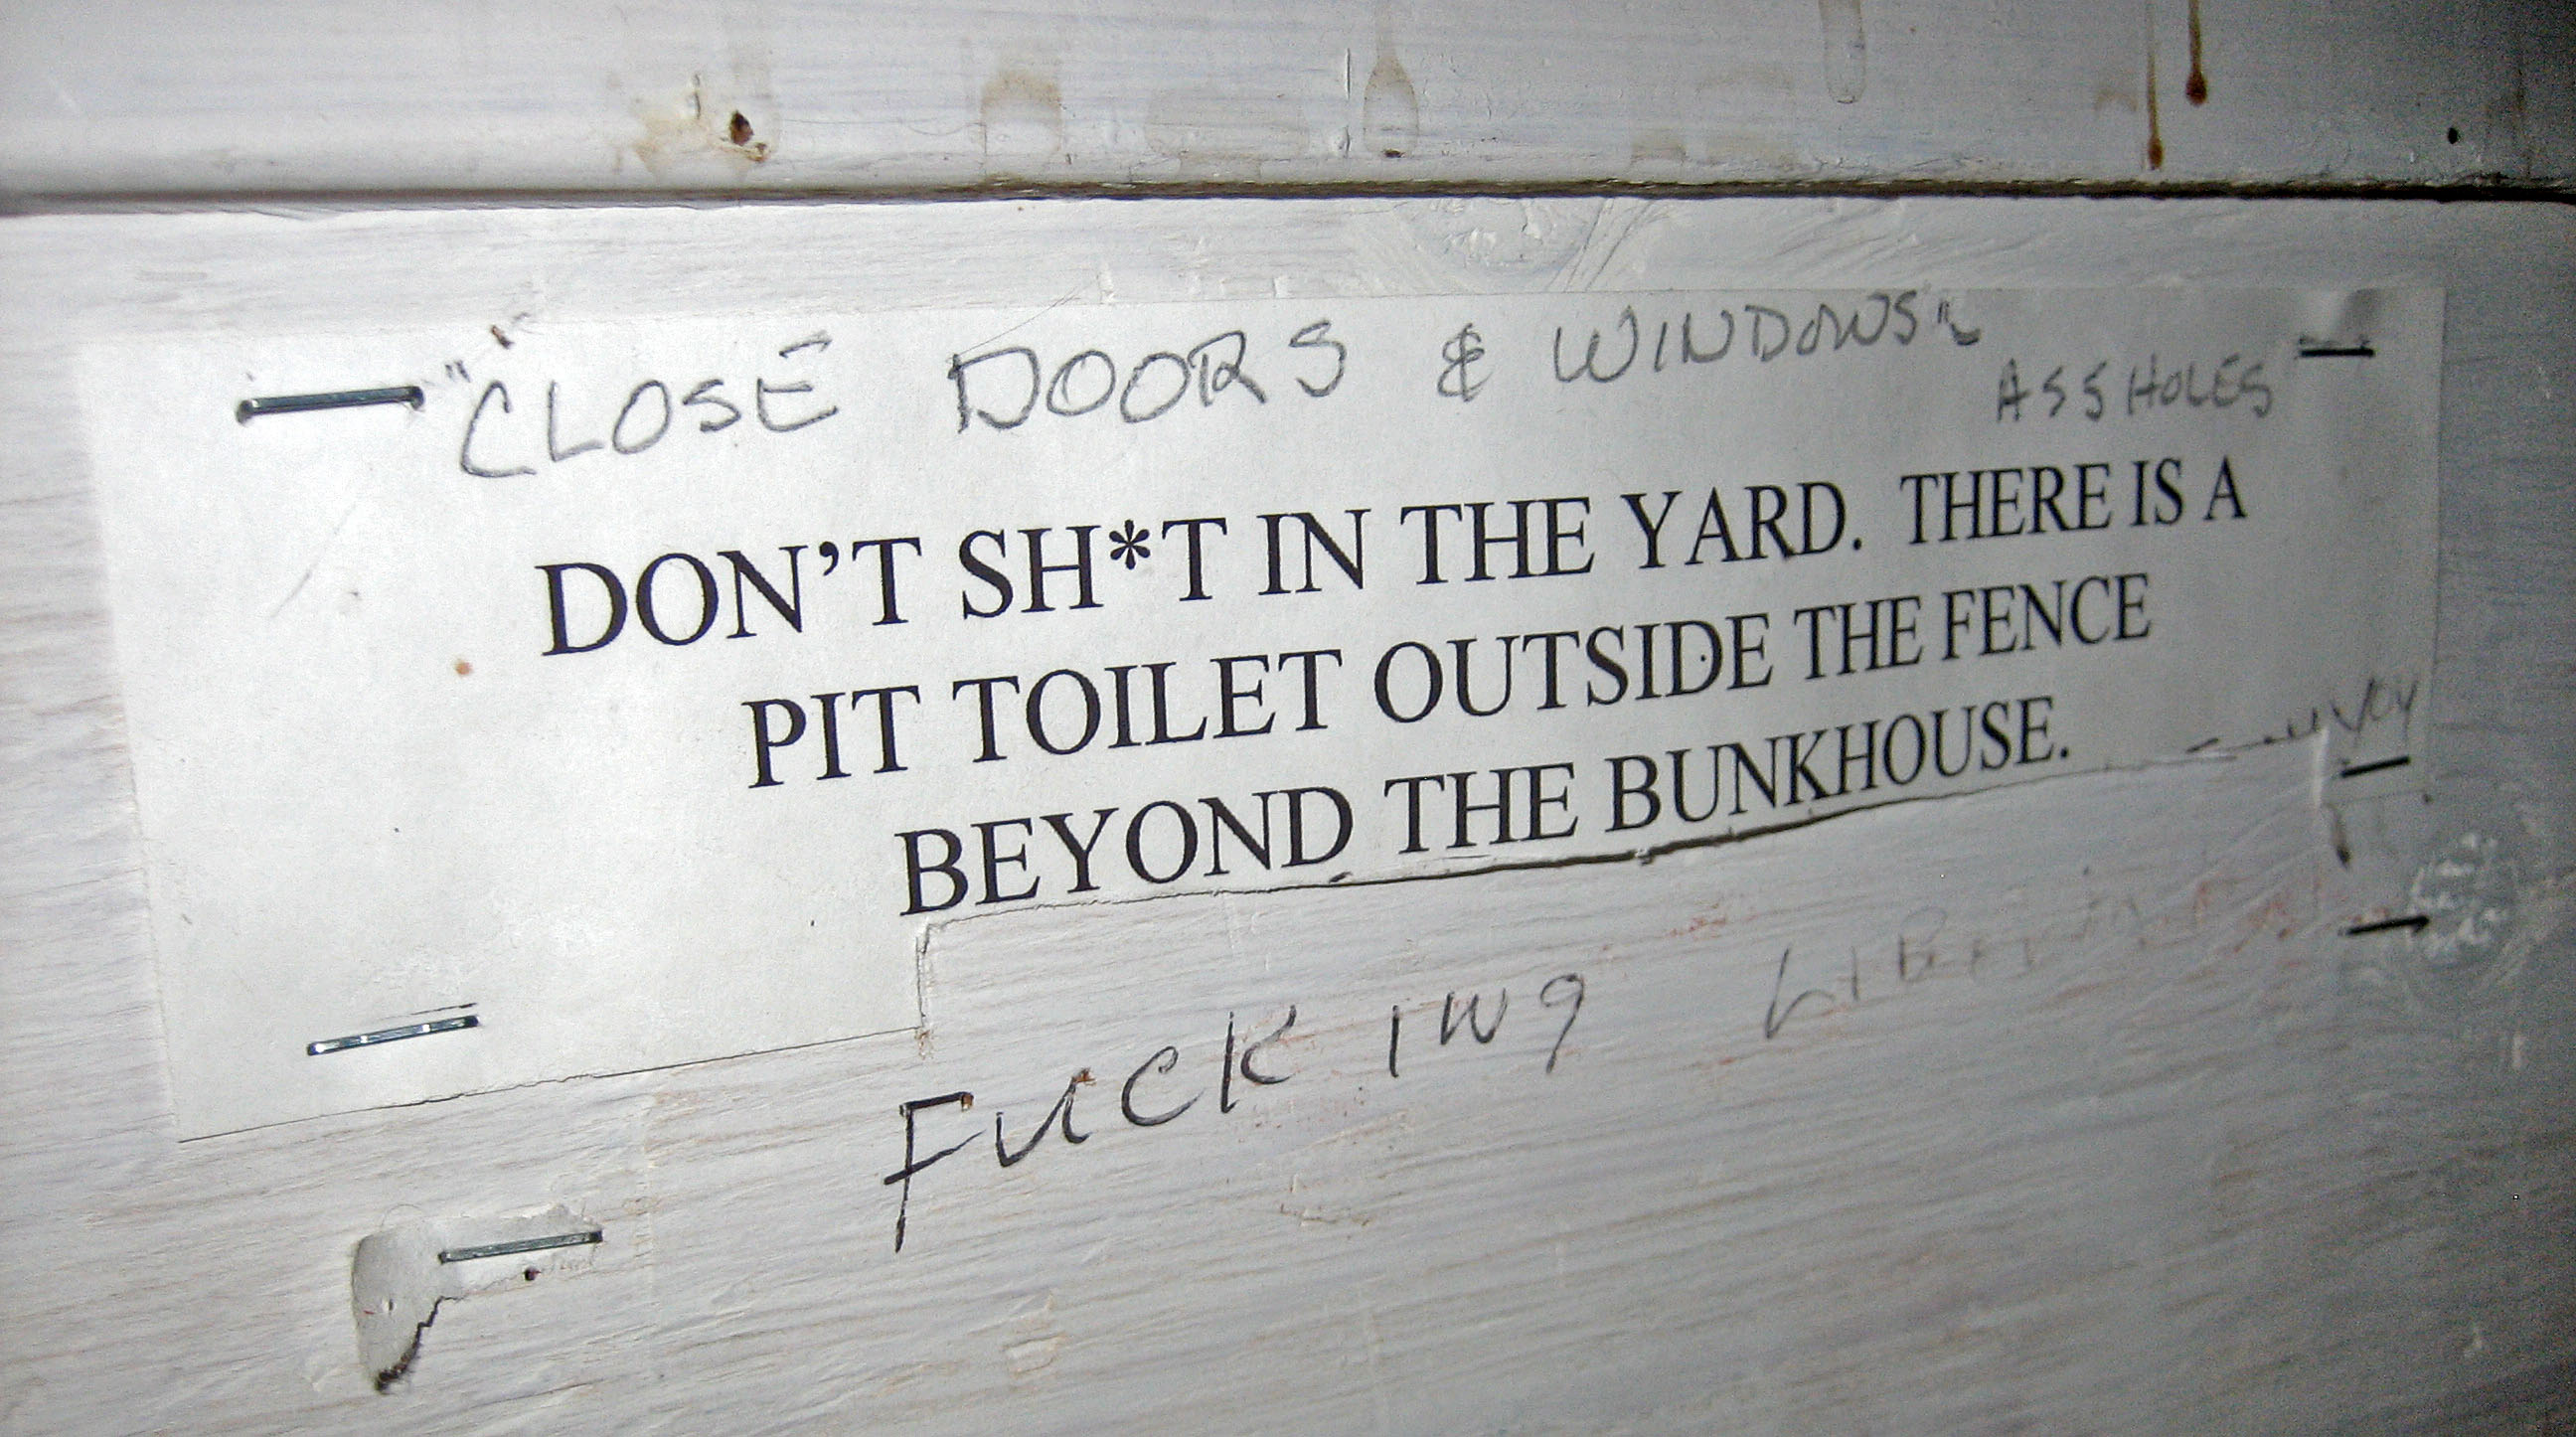 "CLOSE DOORS & WINDOWS"
ASSHOLES
DON'T SH*T IN THE YARD. THERE IS A
PIT TOILET OUTSIDE THE FENCE
BEYOND THE BUNKHOUSE.
FUCKINg